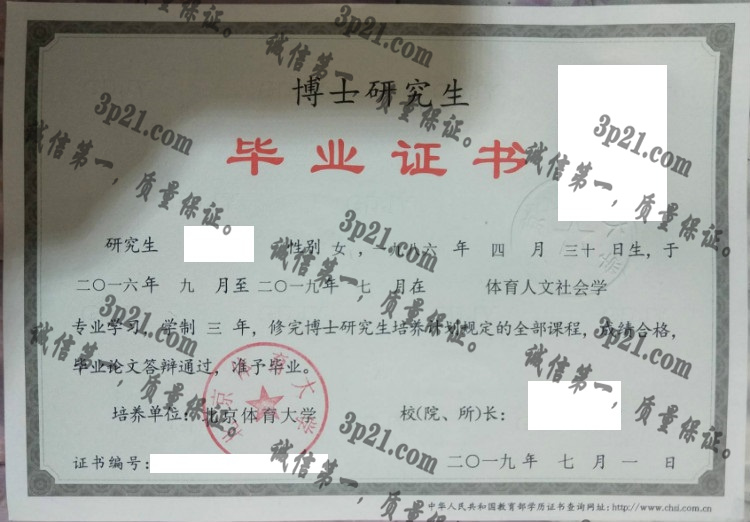 博士研究生
毕业证书
研究生 性别 女，一九八六 年 四 月 三十 日生，于
二〇一六年 九 月至 二〇一九年 七 月在 体育人文社会学
专业学习 学制 三 年，修完博士研究生培养计划规定的全部课程，成绩合格，
毕业论文答辩通过，准予毕业。
培养单位：北京体育大学 校(院、所)长：
证书编号： 二〇一九年 七 月 一 日
中华人民共和国教育部学历证书查询网址：http://www.chsi.com.cn
北京体育大学
3p21.com
诚信第一，质量保证。
3p21.com
诚信第一，质量保证。
3p21.com
诚信第一，质量保证。
3p21.com
诚信第一，质量保证。
3p21.com
诚信第一，质量保证。
3p21.com
诚信第一，质量保证。
3p21.com
诚信第一，质量保证。
3p21.com
诚信第一，质量保证。
3p21.com
诚信第一，质量保证。